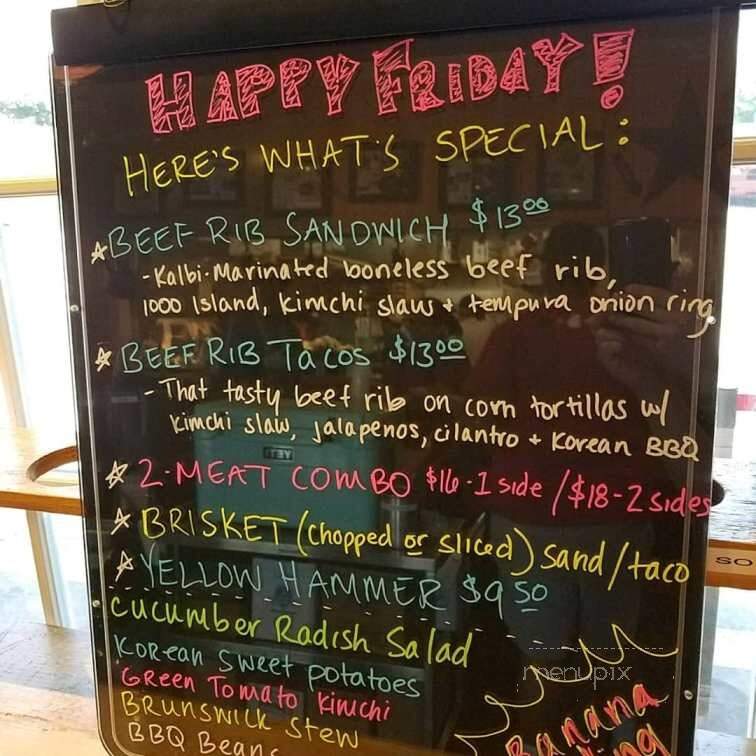 HAPPY FRIDAY!
HERE'S WHAT'S SPECIAL:
BEEF RIB SANDWICH $13⁰⁰
-Kalbi-Marinated boneless beef rib,
1000 Island, kimchi slaw + tempura onion ring
BEEF RIB TACOS $13⁰⁰
-That tasty beef rib on corn tortillas w/
kimchi slaw, jalapenos, cilantro + Korean BBQ
2-MEAT COMBO $16-1 side / $18-2 sides
BRISKET (chopped or sliced) sand/taco
YELLOW HAMMER $9⁵⁰
Cucumber Radish Salad
Korean sweet potatoes
Green Tomato Kimchi
BRUNSWICK STEW
BBQ Beans
Banana
menupix
SO